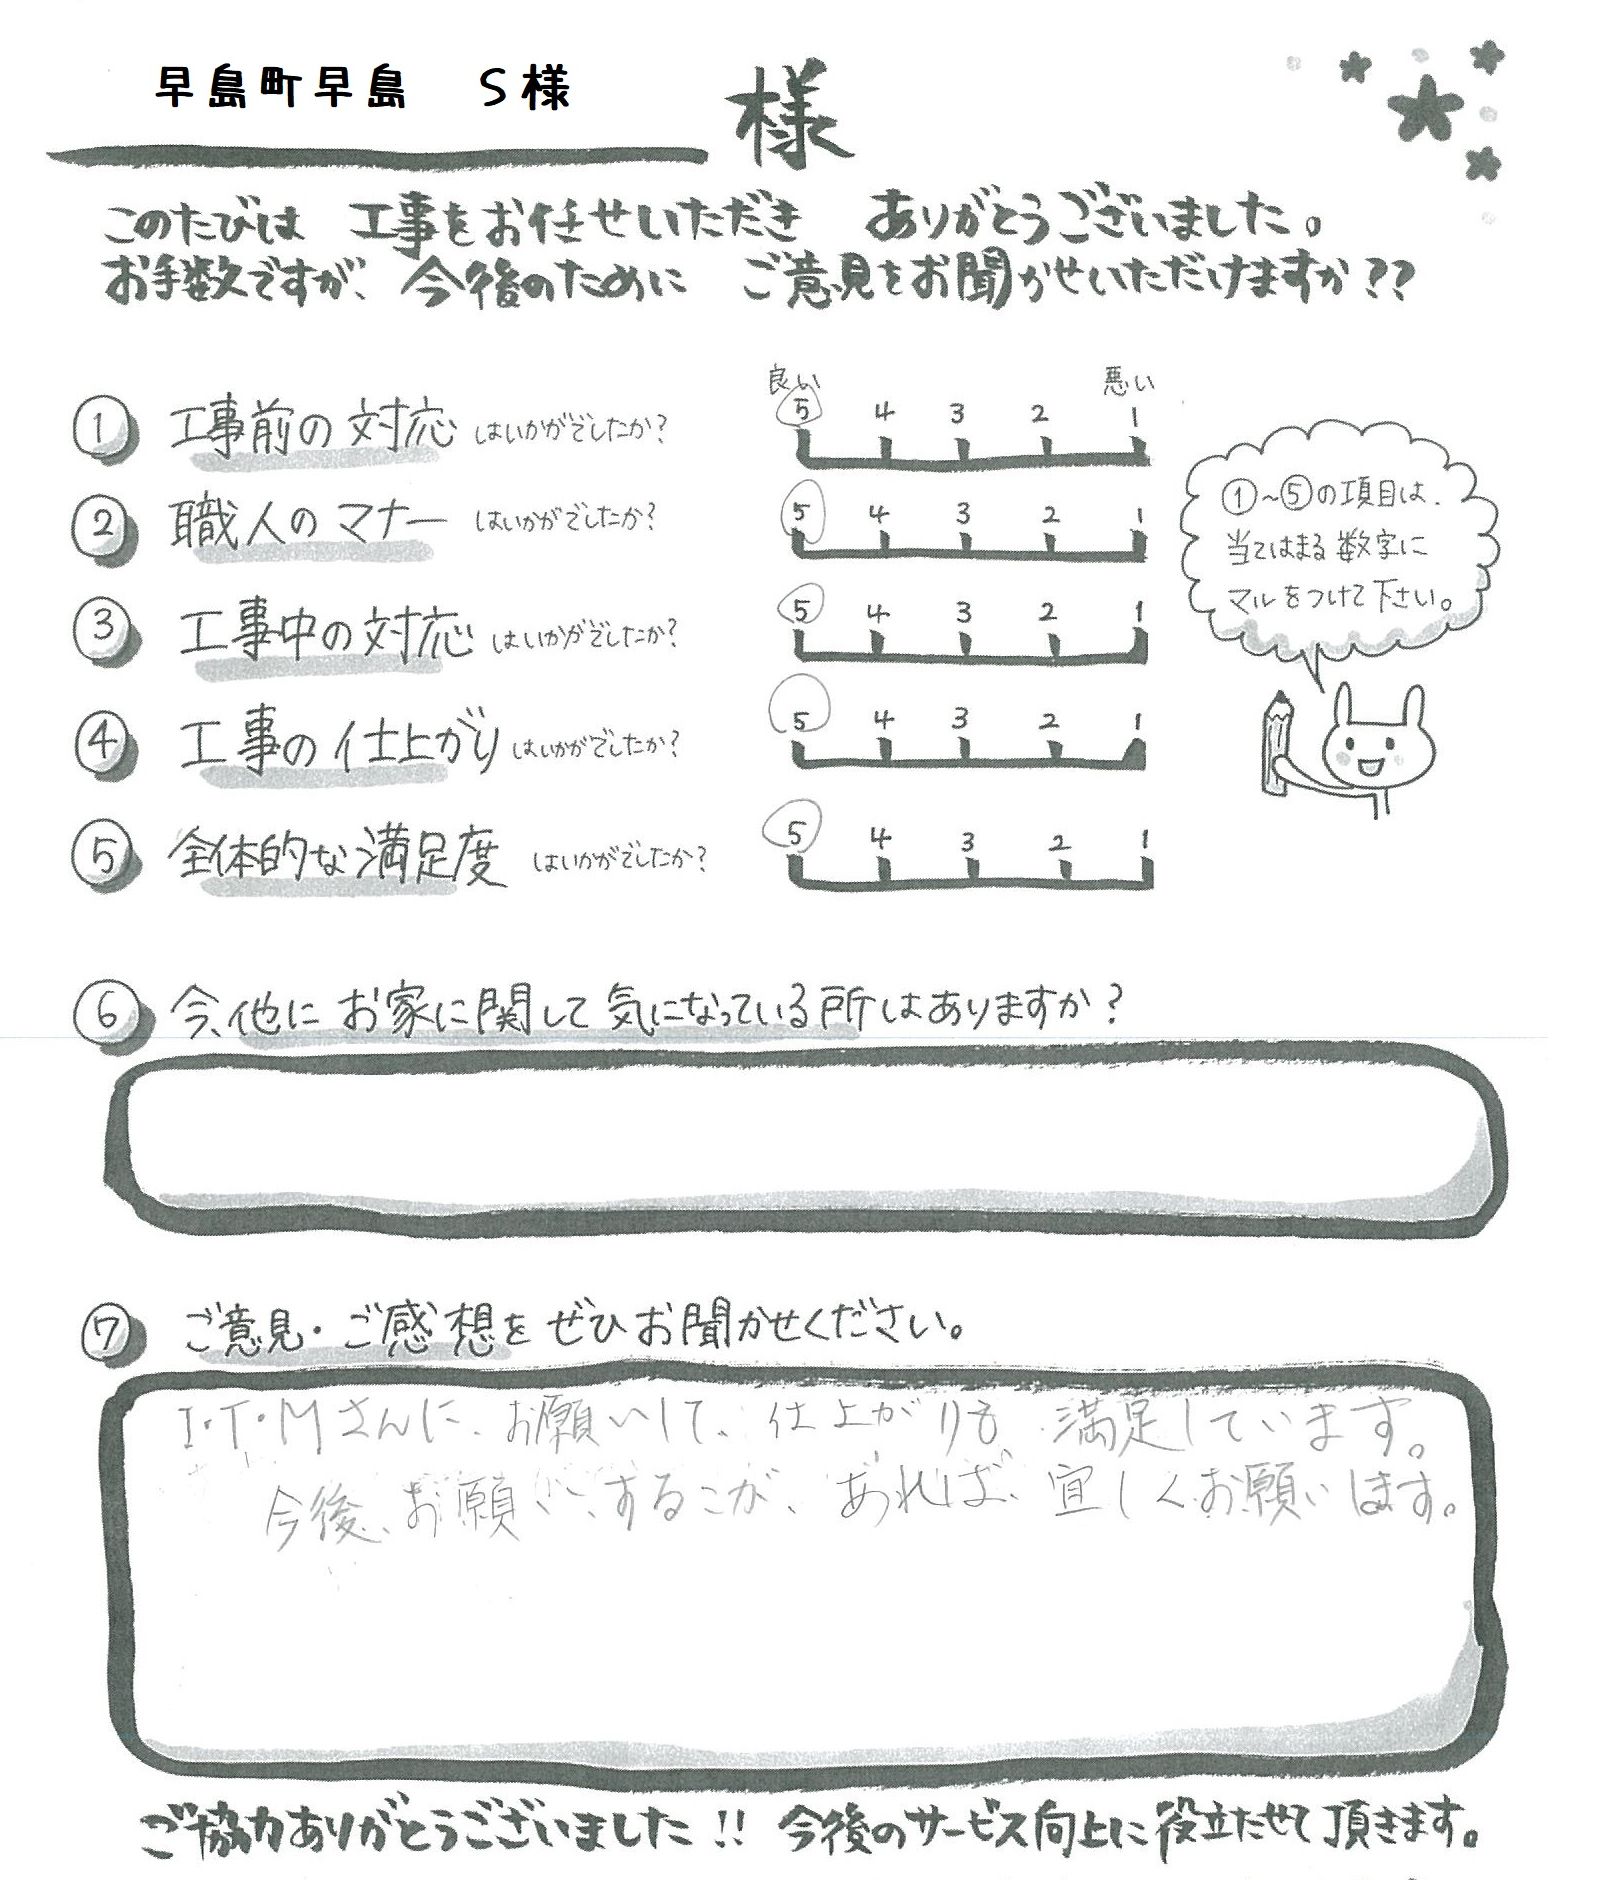 早島町早島　S様 様
このたびは 工事をお任せいただき ありがとうございました。
お手数ですが、今後のために ご意見をお聞かせいただけますか??
良い 悪い
① 工事前の対応 はいかがでしたか? 5 4 3 2 1
② 職人のマナー はいかがでしたか? 5 4 3 2 1
③ 工事中の対応 はいかがでしたか? 5 4 3 2 1
④ 工事の仕上がり はいかがでしたか? 5 4 3 2 1
⑤ 全体的な満足度 はいかがでしたか? 5 4 3 2 1
①~⑤の項目は、
当てはまる数字に
マルをつけて下さい。
⑥ 今、他にお家に関して気になっている所はありますか?
⑦ ご意見・ご感想をぜひお聞かせください。
I・T・Mさんに、お願いして、仕上がりも 満足しています。
今後、お願い、するこが、あれば、宜しくお願いします。
ご協力ありがとうございました!! 今後のサービス向上に役立たせて頂きます。